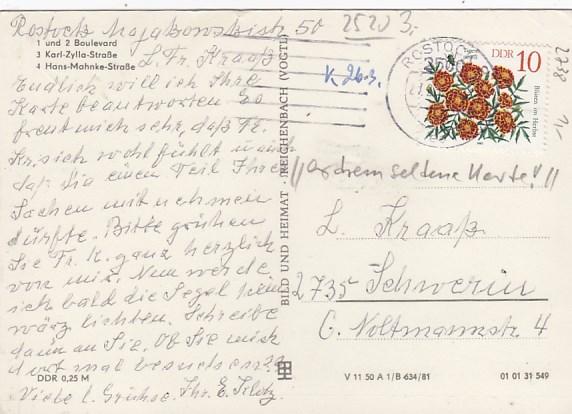 Rostock Majakowskistr 50 2520 3.
1 und 2 Boulevard
3 Karl-Zylla-Straße
4 Hans-Mahnke-Straße
L. Fr. Kraaß
Endlich will ich Ihre
Karte beantworten. Es
freut mich sehr, daß Fr.
Kr. sich wohl fühlt u. auch
daß Sie einen Teil Ihre
Sachen mit nehmen
dürfte. Bitte grüßen
Sie Fr. K. ganz herzlich
von mir. Nun werde
ich bald die Segel heim
wärz lichten. Schreibe
dann an Sie. Ob Sie mich
dort mal besuchen??
Viele l. Grüße. Ihr. E.
DDR 0,25 M
BILD UND HEIMAT · REICHENBACH (VOGTL)
K 26.3.
ROSTOCK
DDR 10
Blüten im Herbst
2738
L. Kraaß
2735 Schwerin
C. Voltmannstr 4
V 11 50 A 1/B 634/81
01 01 31 549